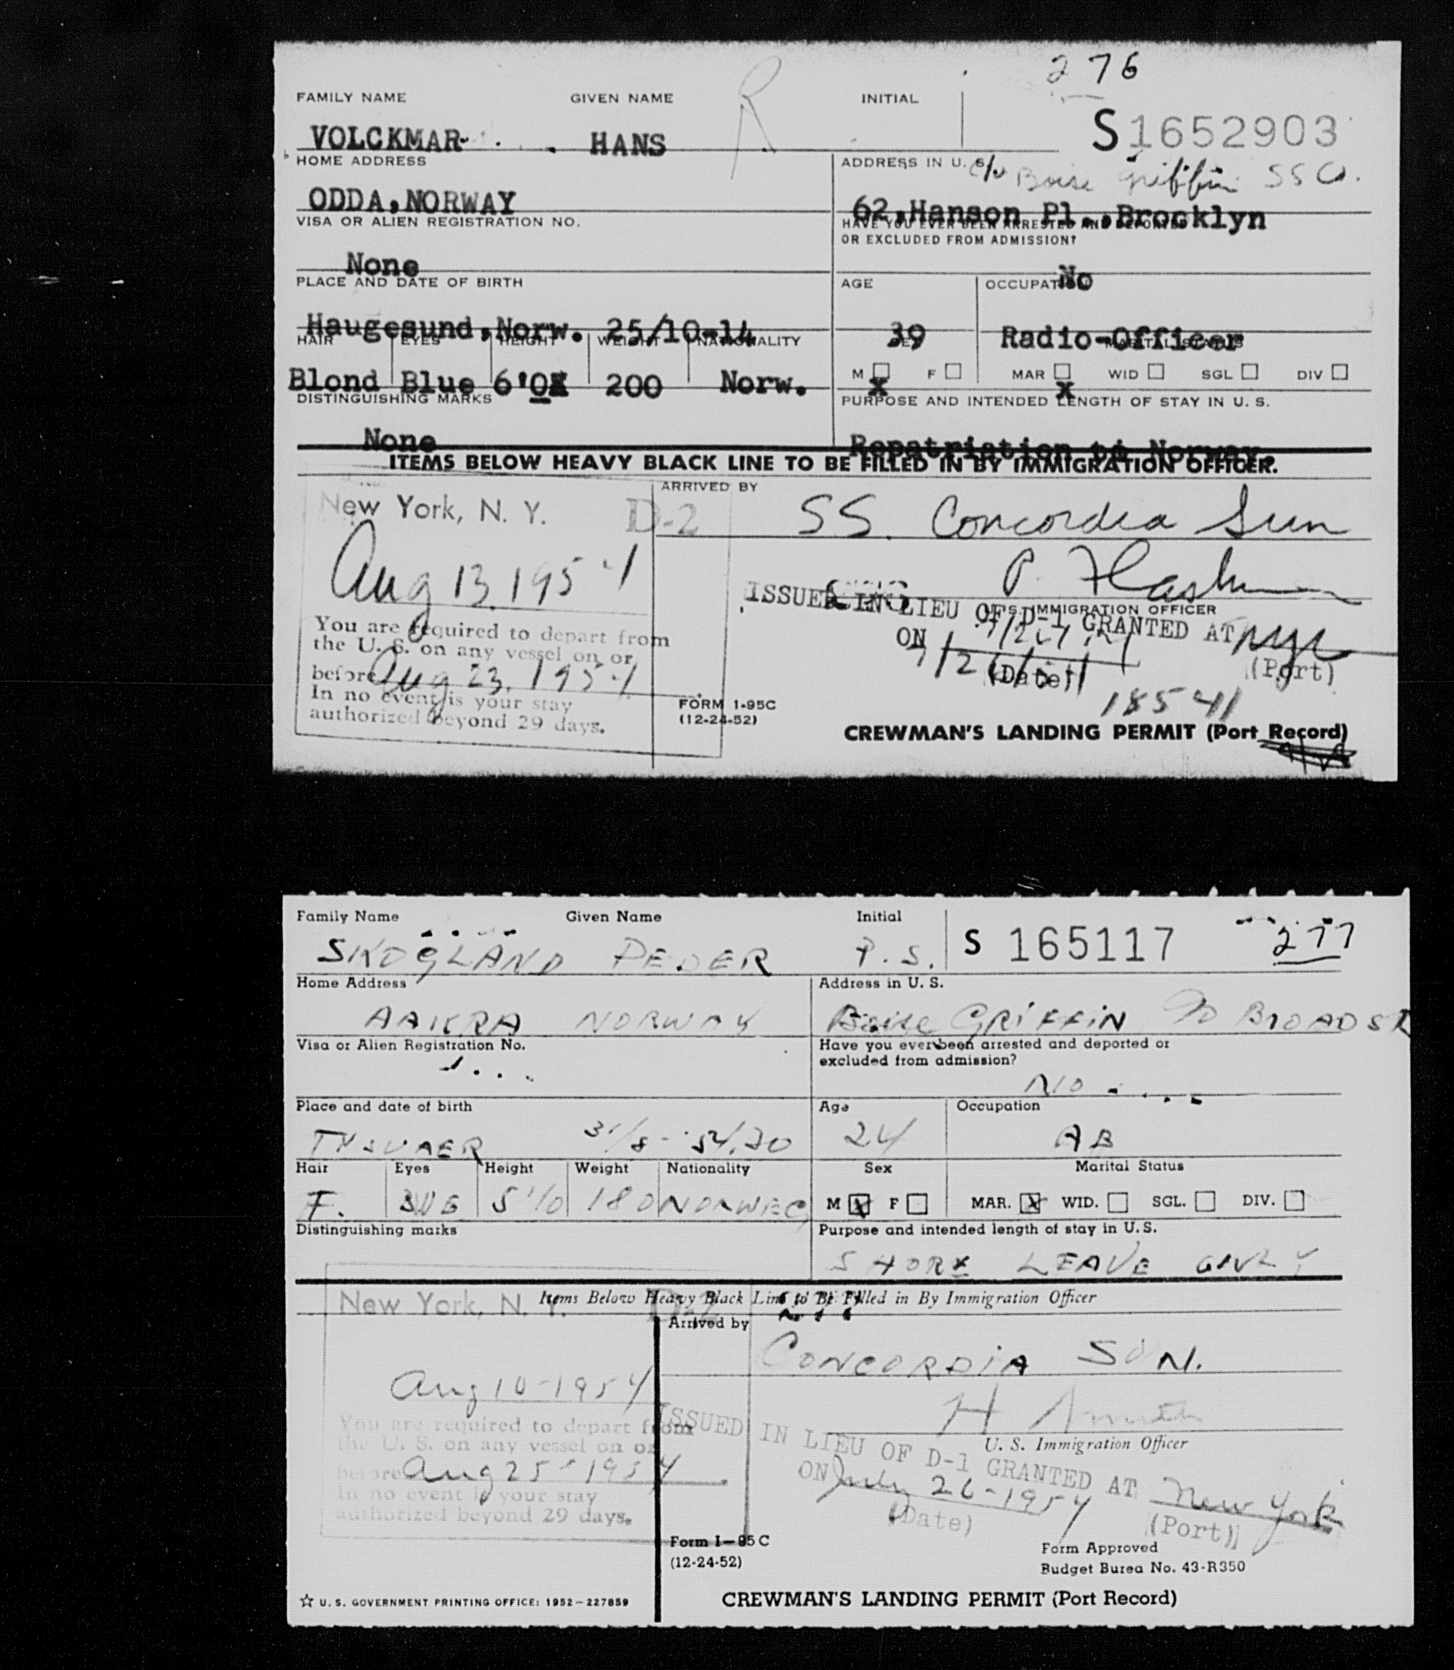 276
FAMILY NAME GIVEN NAME INITIAL
R
S1652903
VOLCKMAR HANS
HOME ADDRESS ADDRESS IN U. S.
c/o Boise Griffin SS Co.
ODDA,NORWAY 62,Hanson Pl.,Brooklyn
VISA OR ALIEN REGISTRATION NO. HAVE YOU EVER BEEN ARRESTED AND DEPORTED
OR EXCLUDED FROM ADMISSION?
None No
PLACE AND DATE OF BIRTH AGE OCCUPATION
Haugesund,Norw. 25/10-14 39 Radio-Officer
HAIR EYES HEIGHT WEIGHT NATIONALITY SEX MARITAL STATUS
M F MAR WID SGL DIV
Blond Blue 6'0 200 Norw. x x
DISTINGUISHING MARKS PURPOSE AND INTENDED LENGTH OF STAY IN U. S.
None Repatriation to Norway.
ITEMS BELOW HEAVY BLACK LINE TO BE FILLED IN BY IMMIGRATION OFFICER.
ARRIVED BY
New York, N. Y. D-2 SS. Concordia Sun
Aug 13, 1954
U. S. IMMIGRATION OFFICER
ISSUED IN LIEU OF D-1 GRANTED AT nyc
ON 7/26/54
(Date) (Port)
You are required to depart from
the U. S. on any vessel on or
before Aug 23, 1954
In no event is your stay
authorized beyond 29 days.
18541
FORM I-95C
(12-24-52)
CREWMAN'S LANDING PERMIT (Port Record)
Family Name Given Name Initial
S 165117 277
SKOGLAND PEDER P. S.
Home Address Address in U. S.
AAKRA NORWAY Boise GRIFFIN 90 BROAD STR
Visa or Alien Registration No. Have you ever been arrested and deported or
excluded from admission?
NO
Place and date of birth Age Occupation
TYSVAER 24 AB
Hair Eyes Height Weight Nationality Sex Marital Status
F. BLUE 5'10 180 NORWEG M X F MAR. X WID. SGL. DIV.
Distinguishing marks Purpose and intended length of stay in U. S.
SHORE LEAVE ONLY
Items Below Heavy Black Line to Be Filled in By Immigration Officer
New York, N. Y. D-2
Arrived by
CONCORDIA SUN.
Aug 10-1954
H Smith
U. S. Immigration Officer
You are required to depart from
the U. S. on any vessel on or
before Aug 25-1954
In no event is your stay
authorized beyond 29 days.
ISSUED IN LIEU OF D-1 GRANTED AT New York
ON July 26-1954
(Date) (Port)
Form I-95 C
(12-24-52)
Form Approved
Budget Burea No. 43-R350
☆ U. S. GOVERNMENT PRINTING OFFICE: 1952-227859
CREWMAN'S LANDING PERMIT (Port Record)